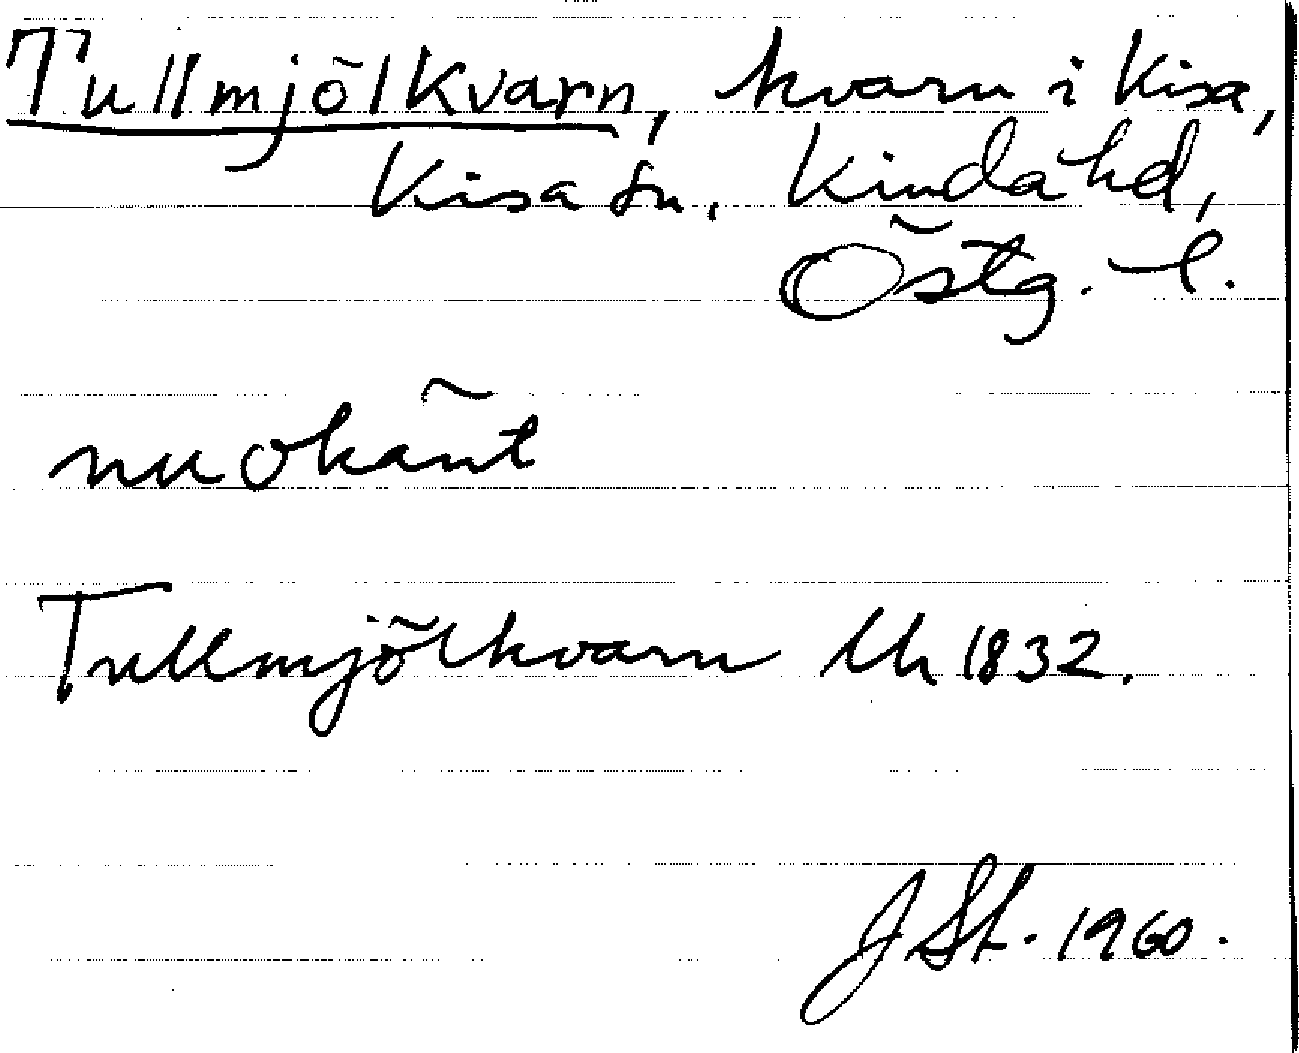 Tullmjölkvarn, kvarn i Kisa,
Kisa sn, Kinda hd,
Östg. l.
nu okänt
Tullmjölkvarn Uh 1832.
J St. 1960.